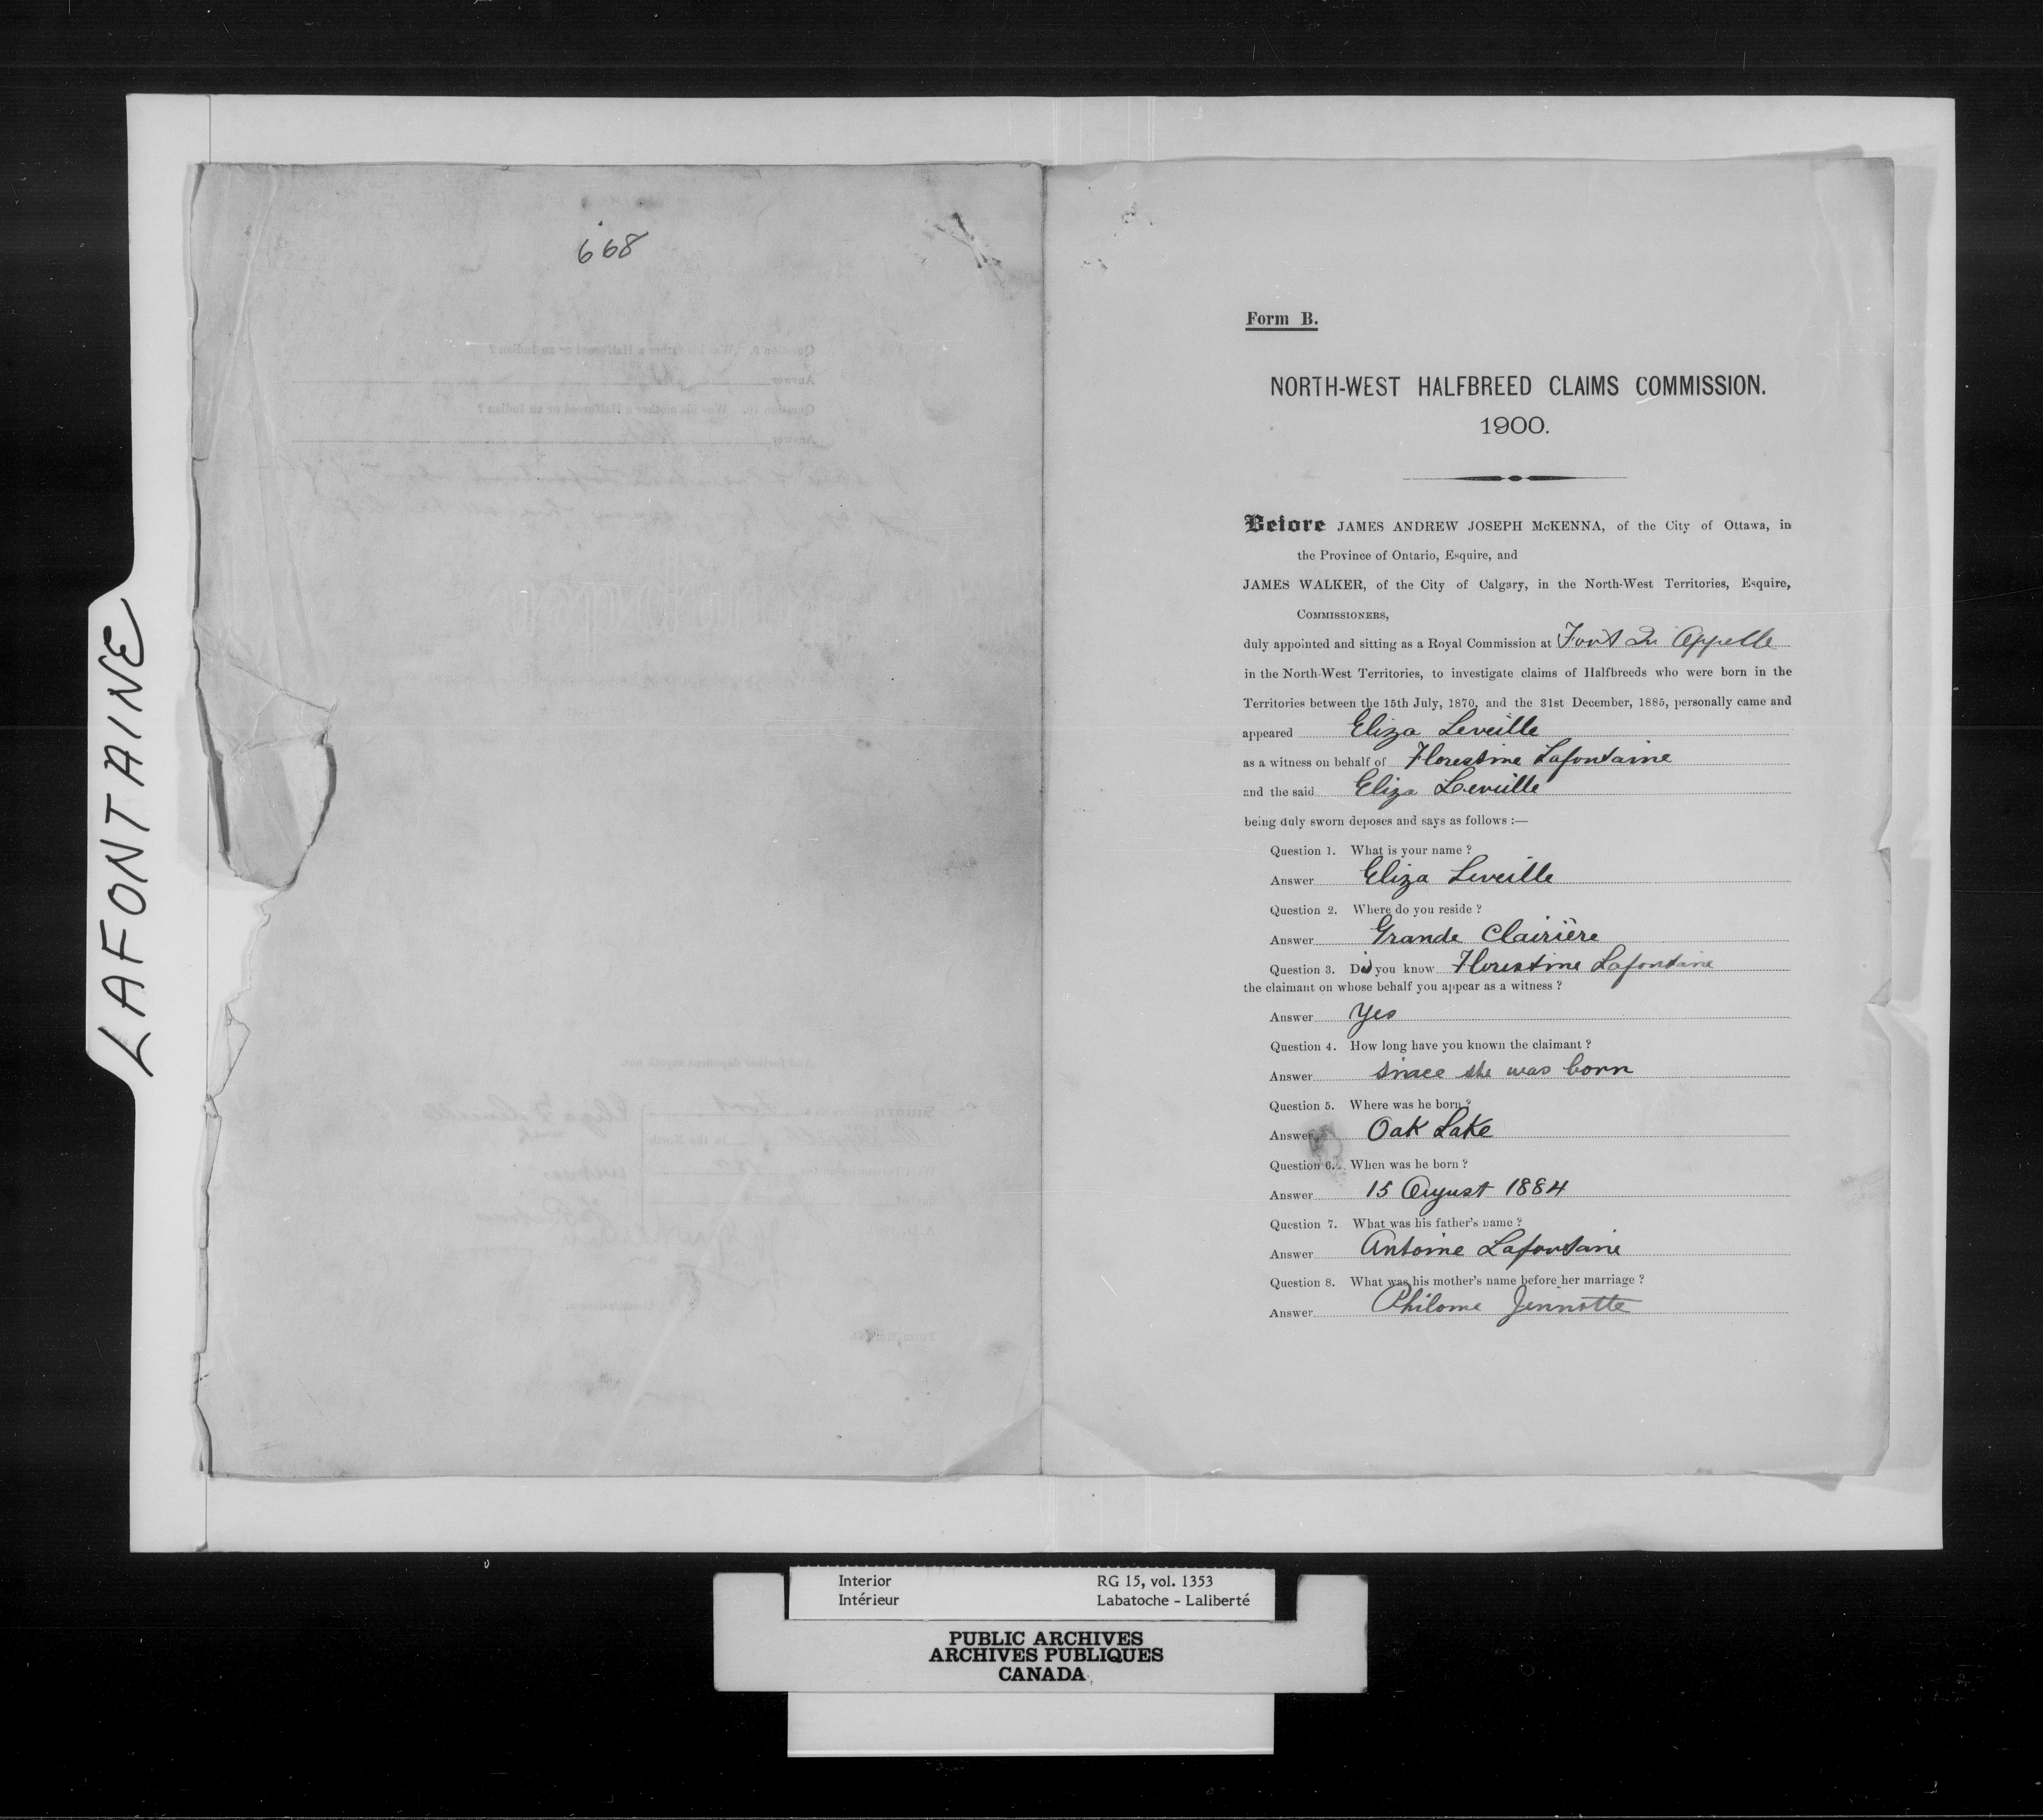 LAFONTAINE
668
Form B.
NORTH-WEST HALFBREED CLAIMS COMMISSION.
1900.
Before JAMES ANDREW JOSEPH McKENNA, of the City of Ottawa, in
the Province of Ontario, Esquire, and
JAMES WALKER, of the City of Calgary, in the North-West Territories, Esquire,
COMMISSIONERS,
duly appointed and sitting as a Royal Commission at Fort Qu Appelle
in the North-West Territories, to investigate claims of Halfbreeds who were born in the
Territories between the 15th July, 1870, and the 31st December, 1885, personally came and
appeared Eliza Leveille
as a witness on behalf of Florestine Lafontaine
and the said Eliza Leveille
being duly sworn deposes and says as follows :—
Question 1. What is your name ?
Answer Eliza Leveille
Question 2. Where do you reside ?
Answer Grande Clairière
Question 3. Did you know Florestine Lafontaine
the claimant on whose behalf you appear as a witness ?
Answer Yes
Question 4. How long have you known the claimant ?
Answer since she was born
Question 5. Where was he born ?
Answer Oak Lake
Question 6. When was he born ?
Answer 15 August 1884
Question 7. What was his father's name ?
Answer Antoine Lafontaine
Question 8. What was his mother's name before her marriage ?
Answer Philome Jennotte
Interior RG 15, vol. 1353
Intérieur Labatoche - Laliberté
PUBLIC ARCHIVES
ARCHIVES PUBLIQUES
CANADA